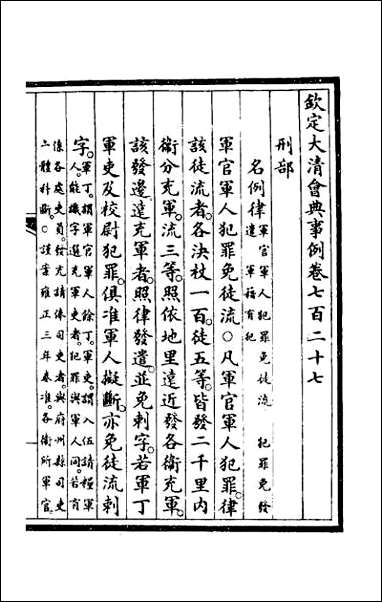 欽定大清會典事例卷七百二十七
刑部
名例律軍官軍人犯罪免徒流 犯罪免發
遣 軍籍有犯
軍官軍人犯罪免徒流○凡軍官軍人犯罪律
該徒流者各決杖一百徒五等皆發二千里內
衞分充軍流三等照依地里遠近發各衞充軍
該發邊遠充軍者照律發遣並免刺字若軍丁
軍吏及校尉犯罪俱准軍人擬斷亦免徒流刺
字軍丁謂軍官軍人餘丁軍吏謂入伍請糧軍
人能識字選充軍吏者犯罪與軍人同若有
係各處吏員發充請俸司吏者與府州縣司吏
一體科斷○謹案雍正三年奏准各衞所軍官